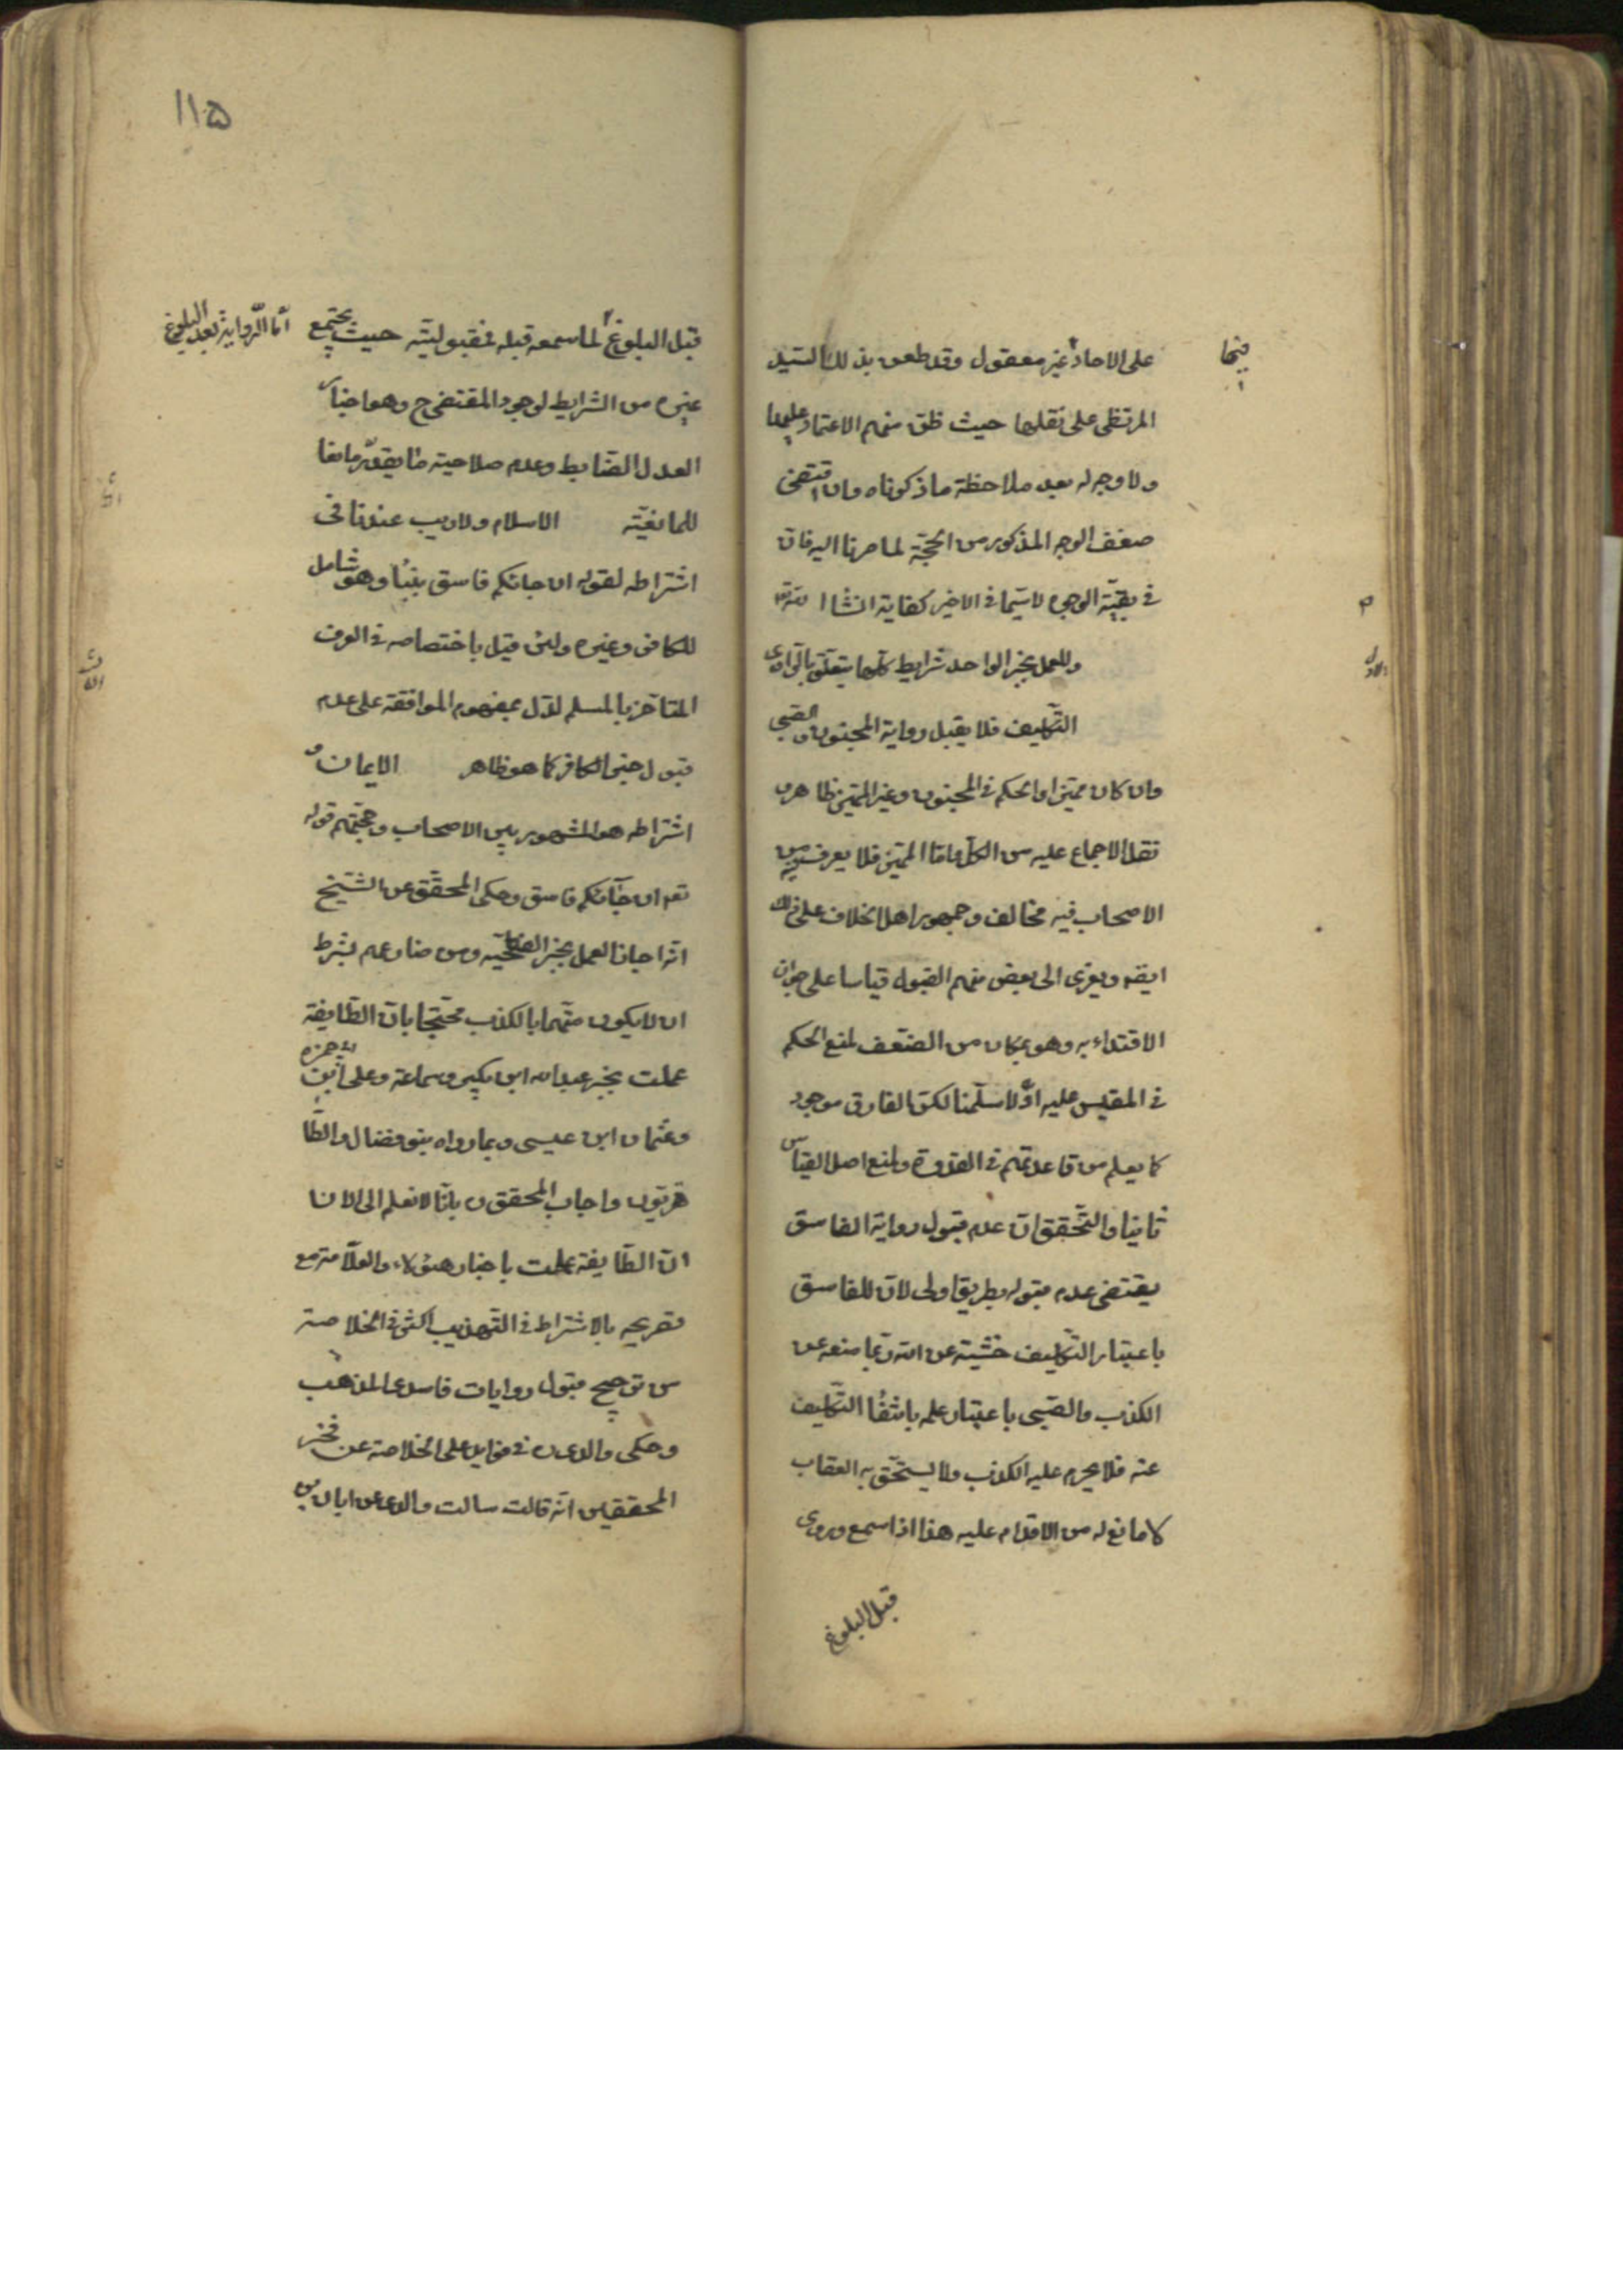 على الاحاد غير معقول وقد طعن بذلك السيد
فيها
المرتضى على نقلها حيث ظن منهم الاعتماد عليها
ولا وجه له بعد ملاحظة ما ذكرناه وان اقتضى
ضعف الوجه المذكور من الحجة لما صرنا اليه فان
في بقية الوجوه لا سيما في الاخير كفاية انشا الله تعا
وللعمل بخبر الواحد شرايط كلها يتعلق بالراوى
الاول
التكليف فلا يقبل رواية المجنون والصبي
وان كان مميزا والحكم في المجنون وغير المميز ظاهر و
نقل الاجماع عليه من الكل واما المميز فلا يعرف فيه من
الاصحاب فيه مخالف وجمهور اهل الخلاف على ذلك
ايضه ويعزى الى بعض منهم القبول قياسا على جواز
الاقتداء به وهو بمكان من الضعف لمنع الحكم
في المقيس عليه اولا سلمنا لكن الفارق موجود
كما يعلم من قاعدتهم في القدوة ولمنع اصل القياس
ثانيا والتحقيق ان عدم قبول رواية الفاسق
يقتضى عدم قبوله بطريق اولى لان للفاسق
باعتبار التكليف خشية من الله ربما منعه عن
الكذب والصبى باعتبار علمه بانتفا التكليف
عنه فلا يحرم عليه الكذب ولا يستحق به العقاب
لا مانع له من الاقدام عليه هذا اذا سمع وروى
قبل البلوغ
١١۵
قبل البلوغ لما سمعه قبله فمقبولية حيث يجتمع
اما الرواية بعد البلوغ
غيره من الشرايط لوجود المقتضى ح وهو اخبار
العدل الضابط وعدم صلاحية ما يقدر مانعا
للمانعية الاسلام ولا ريب عندنا فى
اشتراطه لقوله ان جائكم فاسق بنبأ وهو شامل
للكافر وغيره ولئن قيل باختصاصه في العرف
المتاخر بالمسلم لدل بمفهوم الموافقة على عدم
الثالث
قبول خبر الكافر كما هو ظاهر الايمان و
اشتراطه هو المشهور بين الاصحاب وحجتهم قوله
تعه ان جآئكم فاسق وحكى المحقق عن الشيخ
انه اجاز العمل بخبر الفطحية ومن ضارعهم بشرط
ان لا يكون متهما بالكذب محتجا بان الطايفة
عملت بخبر عبدالله ابن بكير وسماعة وعلى ابن ابى حمزه
وعثمان ابن عيسى وبما رواه بنو فضال والطا
طريون واجاب المحقق ره بانا لا نعلم الى الان
ان الطايفة عملت باخبار هئولاء والعلامة مع
تصريحه بالاشتراط في التهذيب اكثر في الخلاصة
من ترجيح قبول روايات فاسدى المذهب
وحكى والدى ره في فوايده على الخلاصة عن فخر
المحققين انه قال سالت والدى عن ابان بن